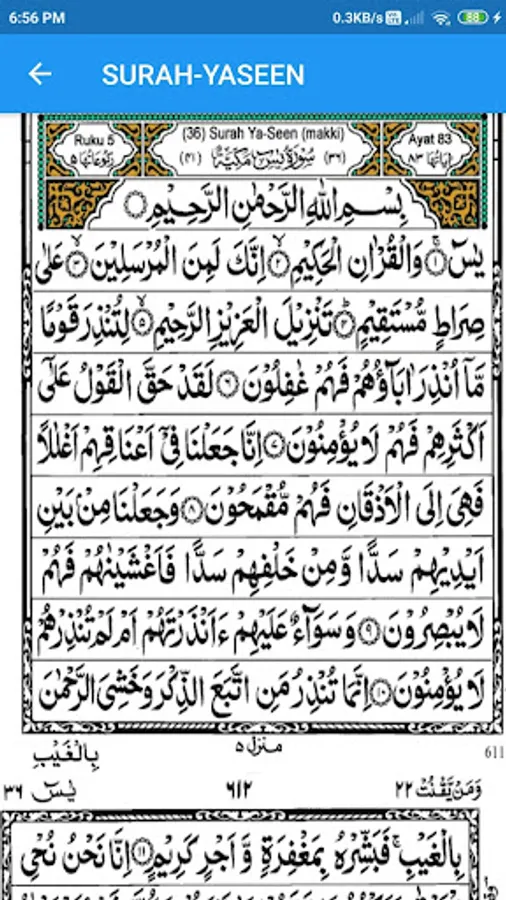 6:56 PM 0.3KB/s 88
SURAH-YASEEN
Ruku 5 (36) Surah Ya-Seen (makki) Ayat 83
رُكُوْعَاتُهَا ٥ (٤١) سُوْرَةُ يٰسٓ مَكِّيَّةٌ (٣٦) اٰيَاتُهَا ٨٣
بِسْمِ اللّٰهِ الرَّحْمٰنِ الرَّحِيْمِ
يٰسٓ ۝١ وَالْقُرْاٰنِ الْحَكِيْمِ ۝٢ اِنَّكَ لَمِنَ الْمُرْسَلِيْنَ ۝٣ عَلٰى
صِرَاطٍ مُّسْتَقِيْمٍ ۝٤ تَنْزِيْلَ الْعَزِيْزِ الرَّحِيْمِ ۝٥ لِتُنْذِرَ قَوْمًا
مَّاۤ اُنْذِرَ اٰبَآؤُهُمْ فَهُمْ غٰفِلُوْنَ ۝٦ لَقَدْ حَقَّ الْقَوْلُ عَلٰۤى
اَكْثَرِهِمْ فَهُمْ لَا يُؤْمِنُوْنَ ۝٧ اِنَّا جَعَلْنَا فِيْۤ اَعْنَاقِهِمْ اَغْلٰلًا
فَهِيَ اِلَى الْاَذْقَانِ فَهُمْ مُّقْمَحُوْنَ ۝٨ وَجَعَلْنَا مِنْۢ بَيْنِ
اَيْدِيْهِمْ سَدًّا وَّمِنْ خَلْفِهِمْ سَدًّا فَاَغْشَيْنٰهُمْ فَهُمْ
لَا يُبْصِرُوْنَ ۝٩ وَسَوَآءٌ عَلَيْهِمْ ءَاَنْذَرْتَهُمْ اَمْ لَمْ تُنْذِرْهُمْ
لَا يُؤْمِنُوْنَ ۝١٠ اِنَّمَا تُنْذِرُ مَنِ اتَّبَعَ الذِّكْرَ وَخَشِيَ الرَّحْمٰنَ
منزل ٥ 611
بِالْغَيْبِ
وَمَنْ يَّقْنُتْ ٢٢ ٦١٢ يٰسٓ ٣٦
بِالْغَيْبِ ۚ فَبَشِّرْهُ بِمَغْفِرَةٍ وَّاَجْرٍ كَرِيْمٍ ۝١١ اِنَّا نَحْنُ نُحْيِ